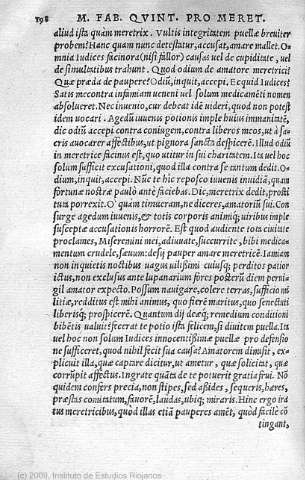 198 M. FAB. QVINT. PRO MERET.
aliud ista quàm meretrix. Vultis integritatem puellæ breuiter
probem? Hanc quam nunc detestatur, accusat, amare mallet. O-
mnia Iudices facinora (nisi fallor) causas uel de cupiditate, uel
de simultatibus trahunt. Quod odium de amatore meretrici?
Quæ præda de paupere? Odit, inquit, accepi. Ecquid Iudices?
Satis mecontra infimiam uenni uel solum medicamēti nomen
absolueret. Nec inuenio, cur debeat idē uideri, quod non potest
idem uocari. Agedū iuuenis potionis imple huius immanitatē,
dic odiū accepi contra coniugem, contra liberos meos, ut à sa-
cris auocarer affectibus, ut pignora sancta despicerē. Illud odiū
in meretrice facinus est, quo utitur in sui charitatem. Ita uel hoc
solum sufficit excusationi, quod illa contra se tantum dedit. O-
dium, inquit, accepi. Nūc te hic reposco iuuenis inuidiā, quam
fortunæ nostræ paulò ante faciebas. Dic, meretrix dedit, prosti
tura porrexit. O' quàm timueram, ne diceres, amatoriū sum. Con
surge agedum iuuenis, & totis corporis animiq; uiribus imple
susceptæ accusationis horrorē. Est quod audiente tota ciuitate
proclames, Miseremini mei, adiuuate, succurrite, bibi medica-
mentum crudele, sæuum: desij pauper amare meretricē. Iamiam
non inquietis noctibus uagus uilissimi cuiusq; perditos patior
ictus, non exclusus ante lupanarium fores posterū diem perui-
gil amator expecto. Possum nauigare, colere terras, sufficio mi
litiæ, redditus est mihi animus, quo fierē maritus, quo senectuti
liberisq; prospicerē. Quantum dij deæq; remedium conditioni
bibētis ualuit! fecerat te potio ista felicem, si diuitem puella. Ita
uel hoc non solum Iudices innocentissimæ puellæ pro defensio
ne sufficeret, quod nihil fecit sua causa? Amatorem dimisit, ex-
plicuit illa, quæ capere dicitur, ut ametur, quæ solicitat, quæ
corrūpit affectus. Ingrate quātū de te potuerit gratia frui. Nō
quidem confers precia, non stipes, sed assides, sequeris, hæres,
præstas comitatum, fauorē, laudas, ubiq; miraris. Hinc ergo ira
tus meretricibus, quod illas etiā pauperes amēt, quod facile cō
tingant,
(c) 2009, Instituto de Estudios Riojanos